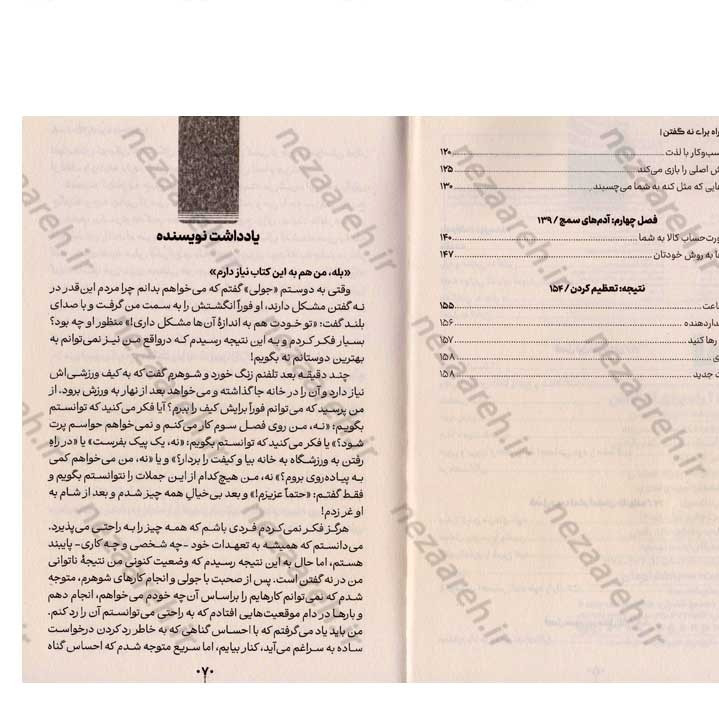 راه برای نه گفتن |
سب‌وکار با لذت ۱۲۰
ش اصلی را بازی می‌کند ۱۲۵
هایی که مثل کنه به شما می‌چسبند ۱۳۰
فصل چهارم: آدم‌های سمج / ۱۳۹
ورت‌حساب کالا به شما ۱۴۰
ها به روش خودتان ۱۴۷
نتیجه: تعظیم کردن / ۱۵۴
اعت ۱۵۵
داردهنده ۱۵۶
رها کنید ۱۵۷
ی ۱۵۸
ت جدید ۱۵۸
یادداشت نویسنده
«بله، من هم به این کتاب نیاز دارم»
وقتی به دوستم «جولی» گفتم که می‌خواهم بدانم چرا مردم این‌قدر در
نه گفتن مشکل دارند، او فوراً انگشتش را به سمت من گرفت و با صدای
بلند گفت: «تو خودت هم به اندازهٔ آن‌ها مشکل داری!» منظور او چه بود؟
بسیار فکر کردم و به این نتیجه رسیدم که درواقع من نیز نمی‌توانم به
بهترین دوستانم نه بگویم!
چند دقیقه بعد تلفنم زنگ خورد و شوهرم گفت که به کیف ورزشی‌اش
نیاز دارد و آن را در خانه جا گذاشته و می‌خواهد بعد از نهار به ورزش برود. از
من پرسید که می‌توانم فوراً برایش کیف را ببرم؟ آیا فکر می‌کنید که توانستم
بگویم: «نه، من روی فصل سوم کار می‌کنم و نمی‌خواهم حواسم پرت
شود؟» یا فکر می‌کنید که توانستم بگویم: «نه، یک پیک بفرست» یا «در راه
رفتن به ورزشگاه به خانه بیا و کیفت را بردار؟» و یا «نه، من می‌خواهم کمی
به پیاده‌روی بروم؟» نه، من هیچ‌کدام از این جملات را نتوانستم بگویم و
فقط گفتم: «حتماً عزیزم!» و بعد بی‌خیال همه چیز شدم و بعد از شام به
او غر زدم!
هرگز فکر نمی‌کردم فردی باشم که همه چیز را به راحتی می‌پذیرد.
می‌دانستم که همیشه به تعهدات خود -چه شخصی و چه کاری- پایبند
هستم، اما حال به این نتیجه رسیدم که وضعیت کنونی من نتیجهٔ ناتوانی
من در نه گفتن است. پس از صحبت با جولی و انجام کارهای شوهرم، متوجه
شدم که نمی‌توانم کارهایم را براساس آن‌چه خودم می‌خواهم، انجام دهم
و بارها در دام موقعیت‌هایی افتادم که به راحتی می‌توانستم آن را رد کنم.
من باید یاد می‌گرفتم که با احساس گناهی که به خاطر رد کردن درخواست
ساده به سراغم می‌آید، کنار بیایم، اما سریع متوجه شدم که احساس گناه
۰۷۰
nezaareh.ir